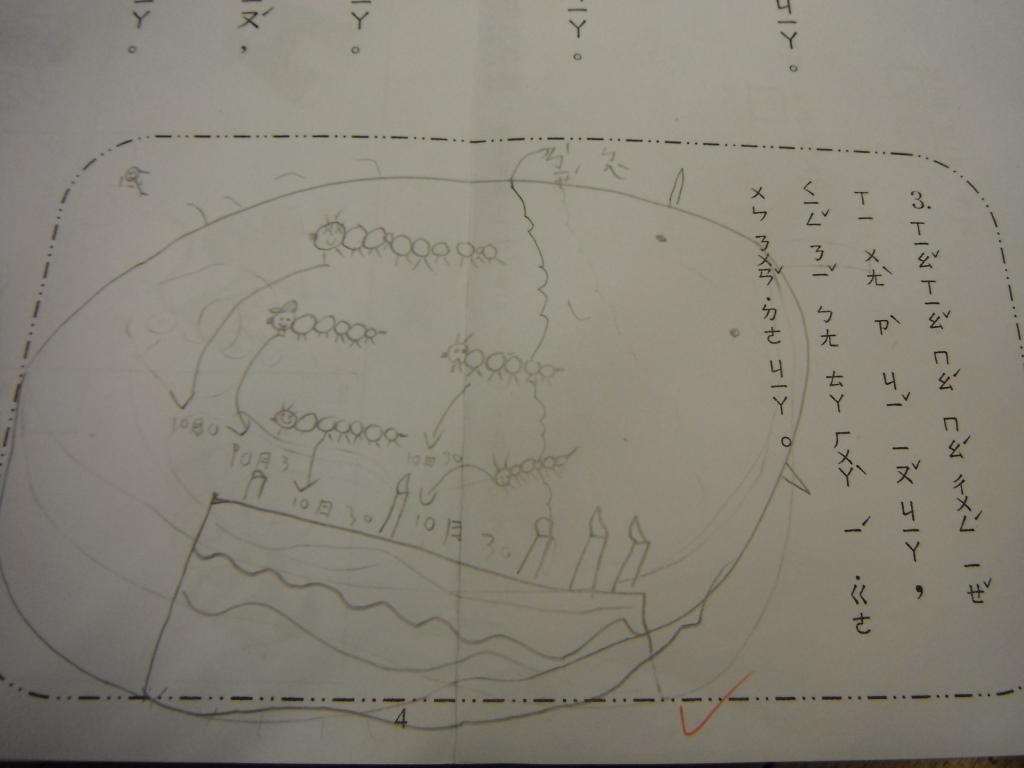 ㄐㄧㄚ。
3. ㄒㄧㄠˇ ㄒㄧㄠˇ ㄇㄠˊ ㄇㄠˊ ㄔㄨㄥˊ ㄧㄝˇ
ㄒㄧ ㄨㄤˋ ㄗˋ ㄐㄧˇ ㄧㄡˇ ㄐㄧㄚ，
ㄑㄧㄥˇ ㄋㄧˇ ㄅㄤ ㄊㄚ ㄏㄨㄚˋ ㄧˊ ˙ㄍㄜ
ㄨㄣ ㄋㄨㄢˇ ˙ㄉㄜ ㄐㄧㄚ。
10月30
10月3
10月30
10月30
4